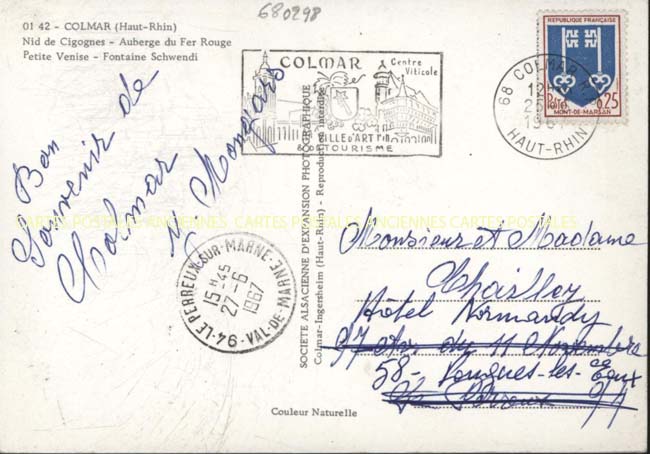 680298
01 42 - COLMAR (Haut-Rhin)
Nid de Cigognes - Auberge du Fer Rouge
Petite Venise - Fontaine Schwendi
COLMAR
Centre
Viticole
VILLE D'ART
& DE TOURISME
REPUBLIQUE FRANÇAISE
Postes
0,25
MONT-DE-MARSAN
68 COLMAR
12H
25
196
HAUT-RHIN
Bon
Souvenir de
Colmar
CARTES POSTALES ANCIENNES CARTES POSTALES ANCIENNES CARTES POSTALES
94 - LE PERREUX-SUR-MARNE
15H45
27-6
1967
VAL-DE-MARNE
SOCIETE ALSACIENNE D'EXPANSION PHOTOGRAPHIQUE
Colmar-Ingersheim (Haut-Rhin) - Reproduction interdite
Monsieur et Madame
Hôtel Normandy
97 du 11 Novembre
58 - Pougues-les-Eaux
Couleur Naturelle